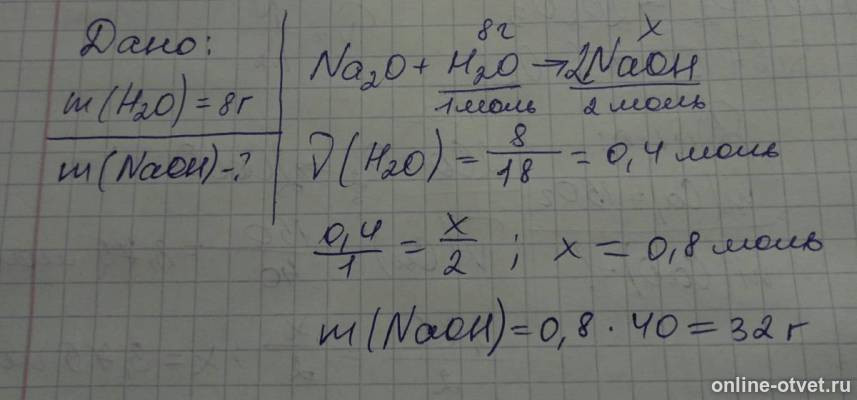 Дано:
m(H₂O) = 8г
m(NaOH) - ?
8г x
Na₂O + H₂O → 2NaOH
1моль 2моль
ν(H₂O) = 8/18 = 0,4 моль
0,4/1 = x/2 ; x = 0,8 моль
m(NaOH) = 0,8 · 40 = 32 г
online-otvet.ru